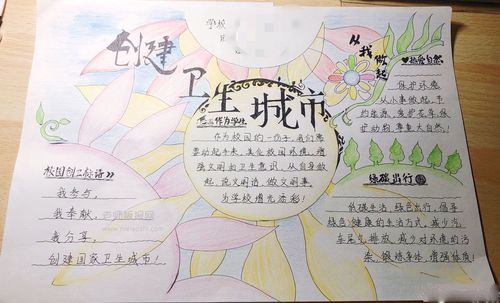 学校
创建
卫生城市
从我做起
作为学生
作为校园的一份子,我们需
要动起手来,美化校园环境,增
强文明的卫生意识,从自身做
起,说文明话,做文明事,
为学校增光添彩!
热爱自然
保护环境
从小事做起,节
约能源,爱护花草,保
护动物,尊重大自然!
校园创卫标语
我参与,
我奉献,
我分享,
创建国家卫生城市!
老师板报网
绿色出行
低碳生活,绿色出行,倡导
绿色,健康的生活方式,减少汽
车尾气排放,减少对环境的污
染,锻炼身体,增强体质!